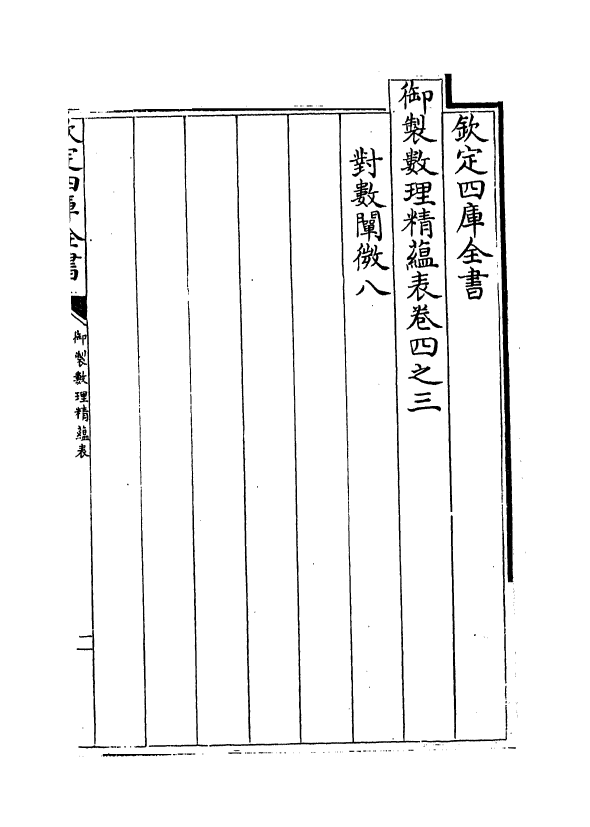 欽定四庫全書
御製數理精蘊表卷四之三
對數闡微八
欽定四庫全書
御製數理精蘊表
二